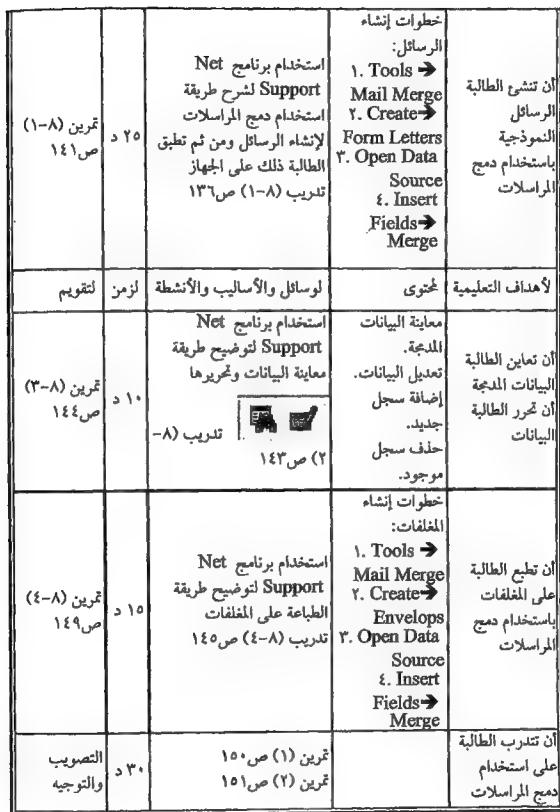 أن تنشئ الطالبة
الرسائل
النموذجية
باستخدام دمج
المراسلات
خطوات إنشاء
الرسائل:
١. Tools ➔
Mail Merge
٢. Create➔
Form Letters
٣. Open Data
Source
٤. Insert
Fields➔
Merge
استخدام برنامج Net
Support لشرح طريقة
استخدام دمج المراسلات
لإنشاء الرسائل ومن ثم تطبق
الطالبة ذلك على الجهاز
تدريب (٨-١) ص١٣٦
٢٥ د
تمرين (٨-١)
ص١٤١
لأهداف التعليمية
لمحتوى
لوسائل والأساليب والأنشطة
لزمن
لتقويم
أن تعاين الطالبة
البيانات المدمجة
أن تحرر الطالبة
البيانات
معاينة البيانات
المدمجة.
تعديل البيانات.
إضافة سجل
جديد.
حذف سجل
موجود.
استخدام برنامج Net
Support لتوضيح طريقة
معاينة البيانات وتحريرها
تدريب (٨-
٢) ص١٤٣
١٠ د
تمرين (٨-٣)
ص١٤٤
أن تطبع الطالبة
على المغلفات
باستخدام دمج
المراسلات
خطوات إنشاء
المغلفات:
١. Tools ➔
Mail Merge
٢. Create➔
Envelops
٣. Open Data
Source
٤. Insert
Fields➔
Merge
استخدام برنامج Net
Support لتوضيح طريقة
الطباعة على المغلفات
تدريب (٨-٤) ص١٤٥
١٥ د
تمرين (٨-٤)
ص١٤٩
أن تتدرب الطالبة
على استخدام
دمج المراسلات
تمرين (١) ص١٥٠
تمرين (٢) ص١٥١
٣٠ د
التصويب
والتوجيه